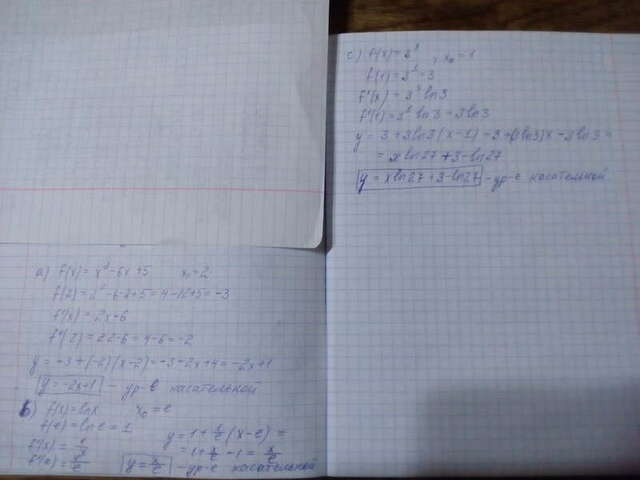 а) f(x) = x² - 6x + 5 x₀ = 2
f(2) = 2² - 6·2 + 5 = 4 - 12 + 5 = -3
f'(x) = 2x - 6
f'(2) = 2·2 - 6 = 4 - 6 = -2
y = -3 + (-2)(x - 2) = -3 - 2x + 4 = -2x + 1
y = -2x + 1 - ур-е касательной
b) f(x) = ln x x₀ = e
f(e) = ln e = 1
f'(x) = 1/x
f'(e) = 1/e
y = 1 + 1/e (x - e) =
= 1 + x/e - 1 = x/e
y = x/e - ур-е касательной
c) f(x) = 3ˣ , x₀ = 1
f(1) = 3¹ = 3
f'(x) = 3ˣ ln 3
f'(1) = 3¹ ln 3 = 3 ln 3
y = 3 + 3 ln 3 (x - 1) = 3 + (3 ln 3)x - 3 ln 3 =
= x ln 27 + 3 - ln 27
y = x ln 27 + 3 - ln 27 - ур-е касательной